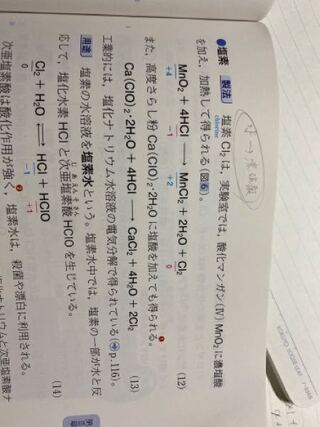 ●塩素 製法 塩素 Cl₂ は，実験室では，酸化マンガン(Ⅳ) MnO₂ に濃塩酸
chlorine
を加え，加熱して得られる(図6)。
MnO₂ + 4HCl ⟶ MnCl₂ + 2H₂O + Cl₂ (12)
+4 −1 +2 0
また，高度さらし粉 Ca(ClO)₂·2H₂O に塩酸を加えても得られる。
Ca(ClO)₂·2H₂O + 4HCl ⟶ CaCl₂ + 4H₂O + 2Cl₂ (13)
工業的には，塩化ナトリウム水溶液の電気分解で得られている(➔p.116)。
用途 塩素の水溶液を塩素水という。塩素水中では，塩素の一部が水と反
応して，塩化水素 HCl と次亜塩素酸 HClO を生じている。
Cl₂ + H₂O ⇄ HCl + HClO (14)
0 −1 +1
次亜塩素酸は酸化作用が強く，塩素水は，殺菌や漂白に利用される。